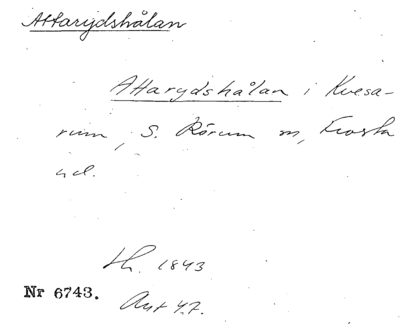 Attarydshålan
Attarydshålan i Kvesa-
rum, S. Rörum sn, Frosta
hd.
th. 1843
Nr 6743.
Ant 4.7.